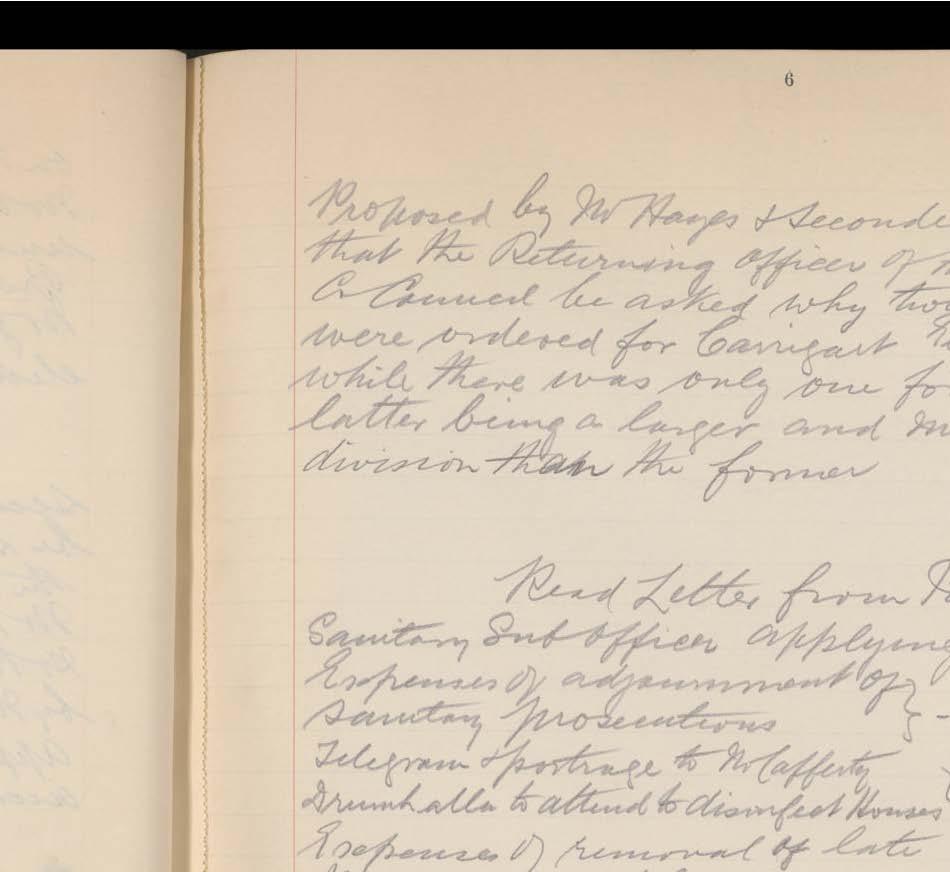 6
Proposed by Mr Hayes & Seconde
that the Returning Officer of
Co Council be asked why
were ordered for Carrigart
while there was only one fo
latter being a larger and
division than the former
Read Letter from
Sanitary Sub Officer applying
Expenses of adjournment of }
Sanitary prosecutions
Telegram & portrage to McCafferty
Drumhalla to attend to disinfect Houses
Expenses of removal of late